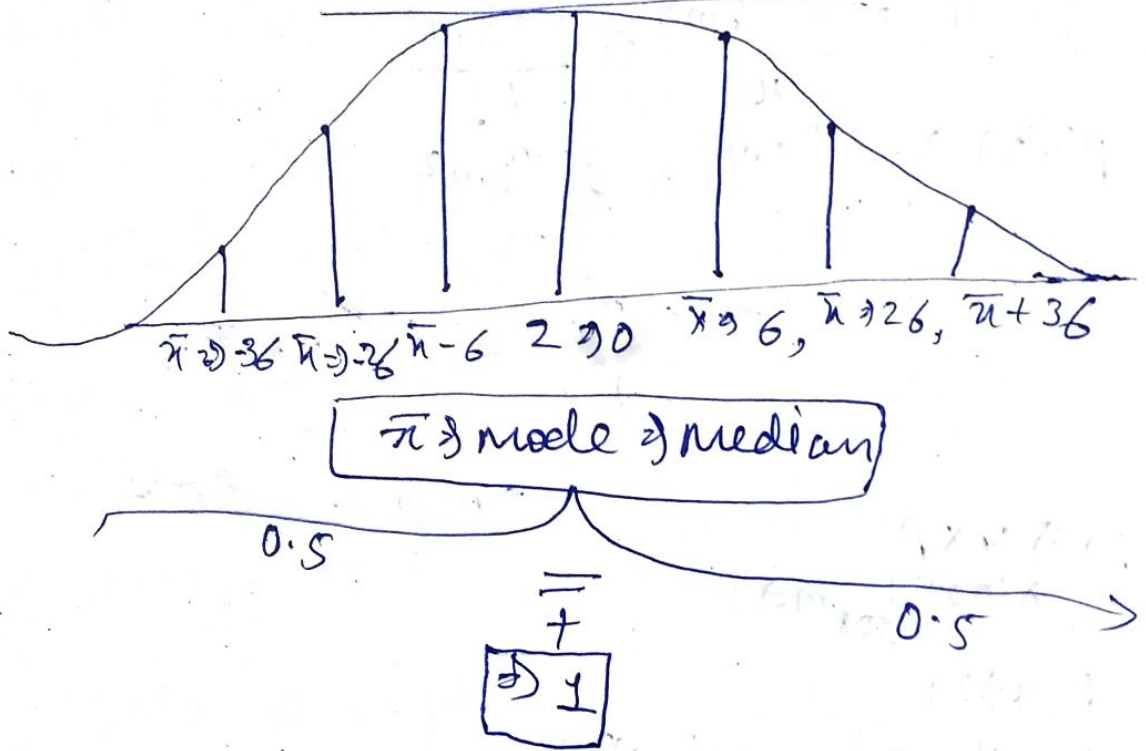 x̄ ⇒ -3σ x̄ ⇒ -2σ x̄ - σ Z ⇒ 0 x̄ ⇒ σ, x̄ ⇒ 2σ, x̄ + 3σ
x̄ ⇒ mode ⇒ median
0.5
0.5
=
+
⇒ 1